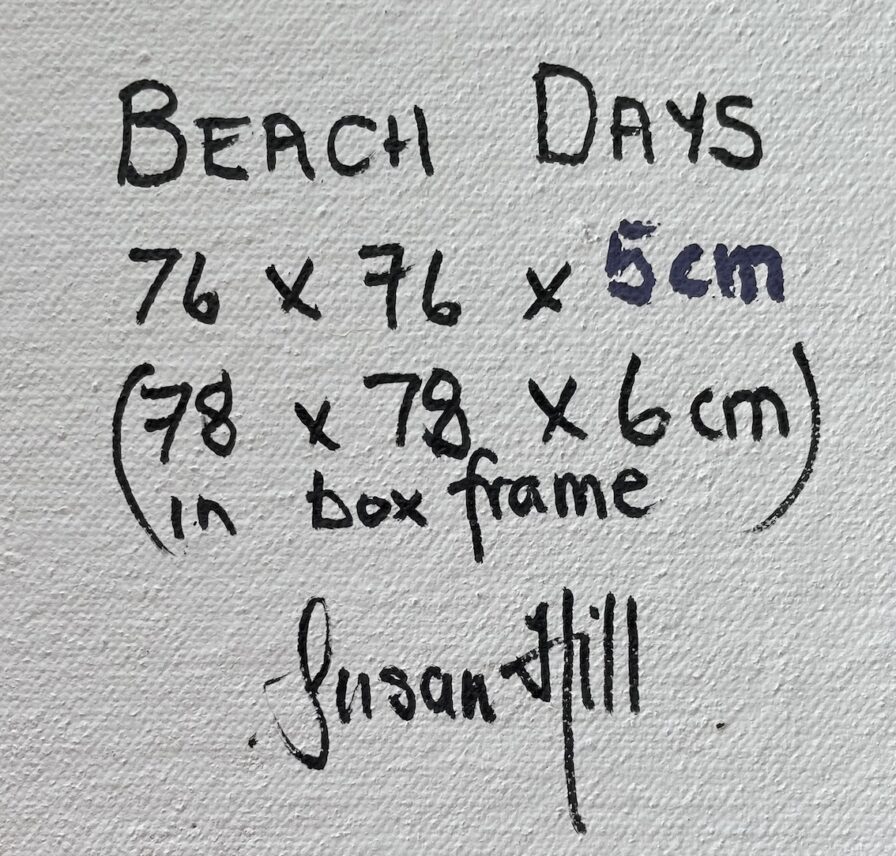 BEACH DAYS
76 x 76 x 5cm
(78 x 78 x 6cm
in box frame)
Susan Hill